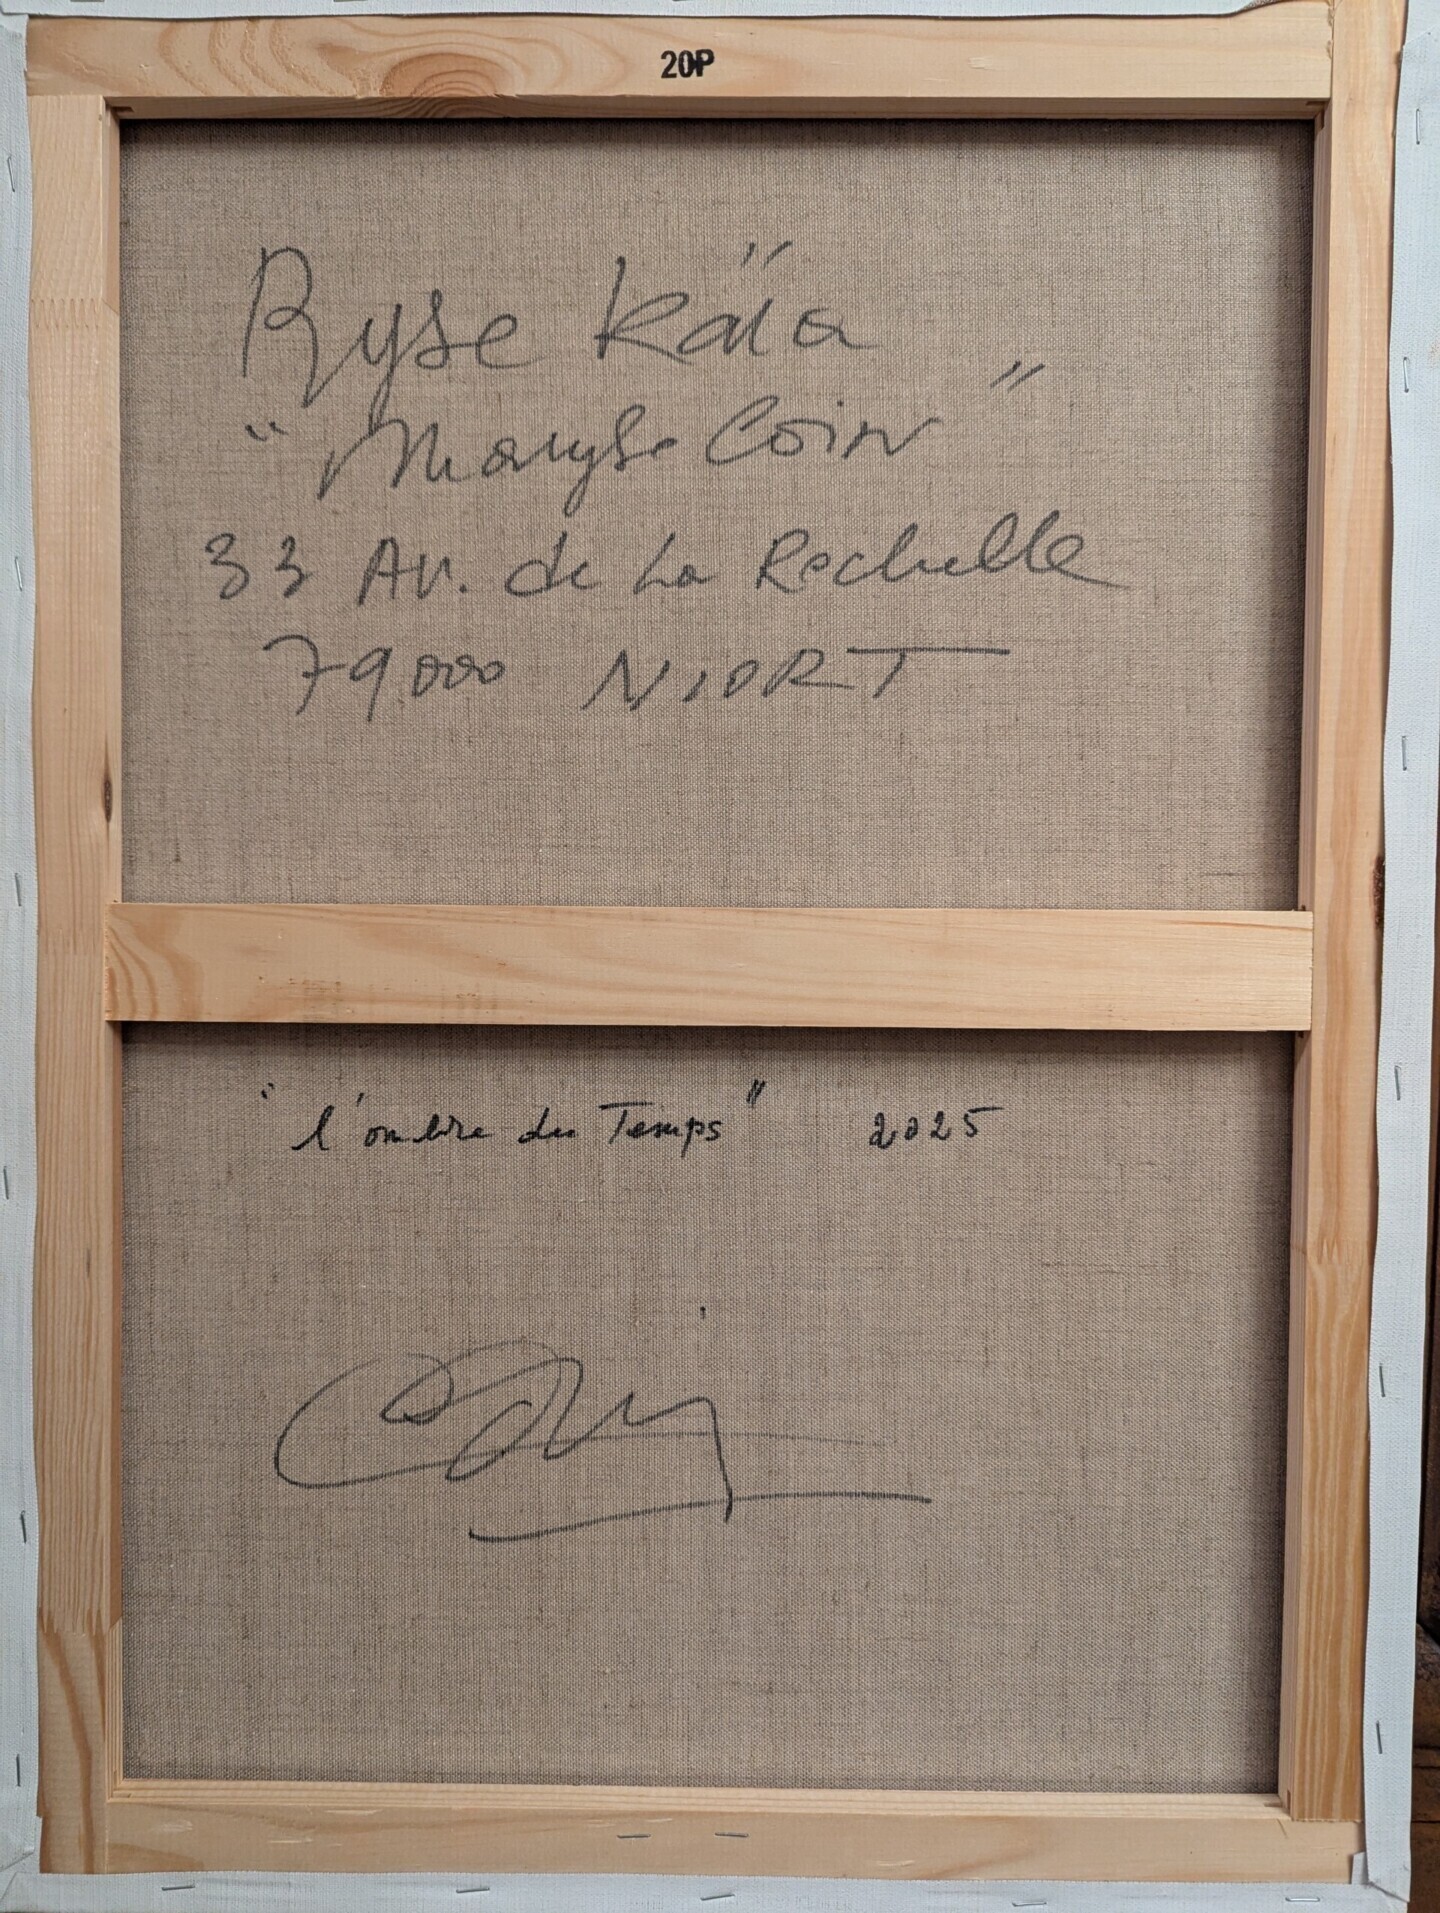 20P
Ryse Kaïa
"Maryse Coin"
33 Av. de La Rochelle
79000 NIORT
"l'ombre du Temps" 2025